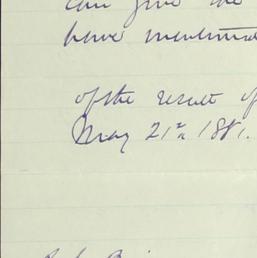 can give the
have mentioned
of the result of
May 21st 1881.